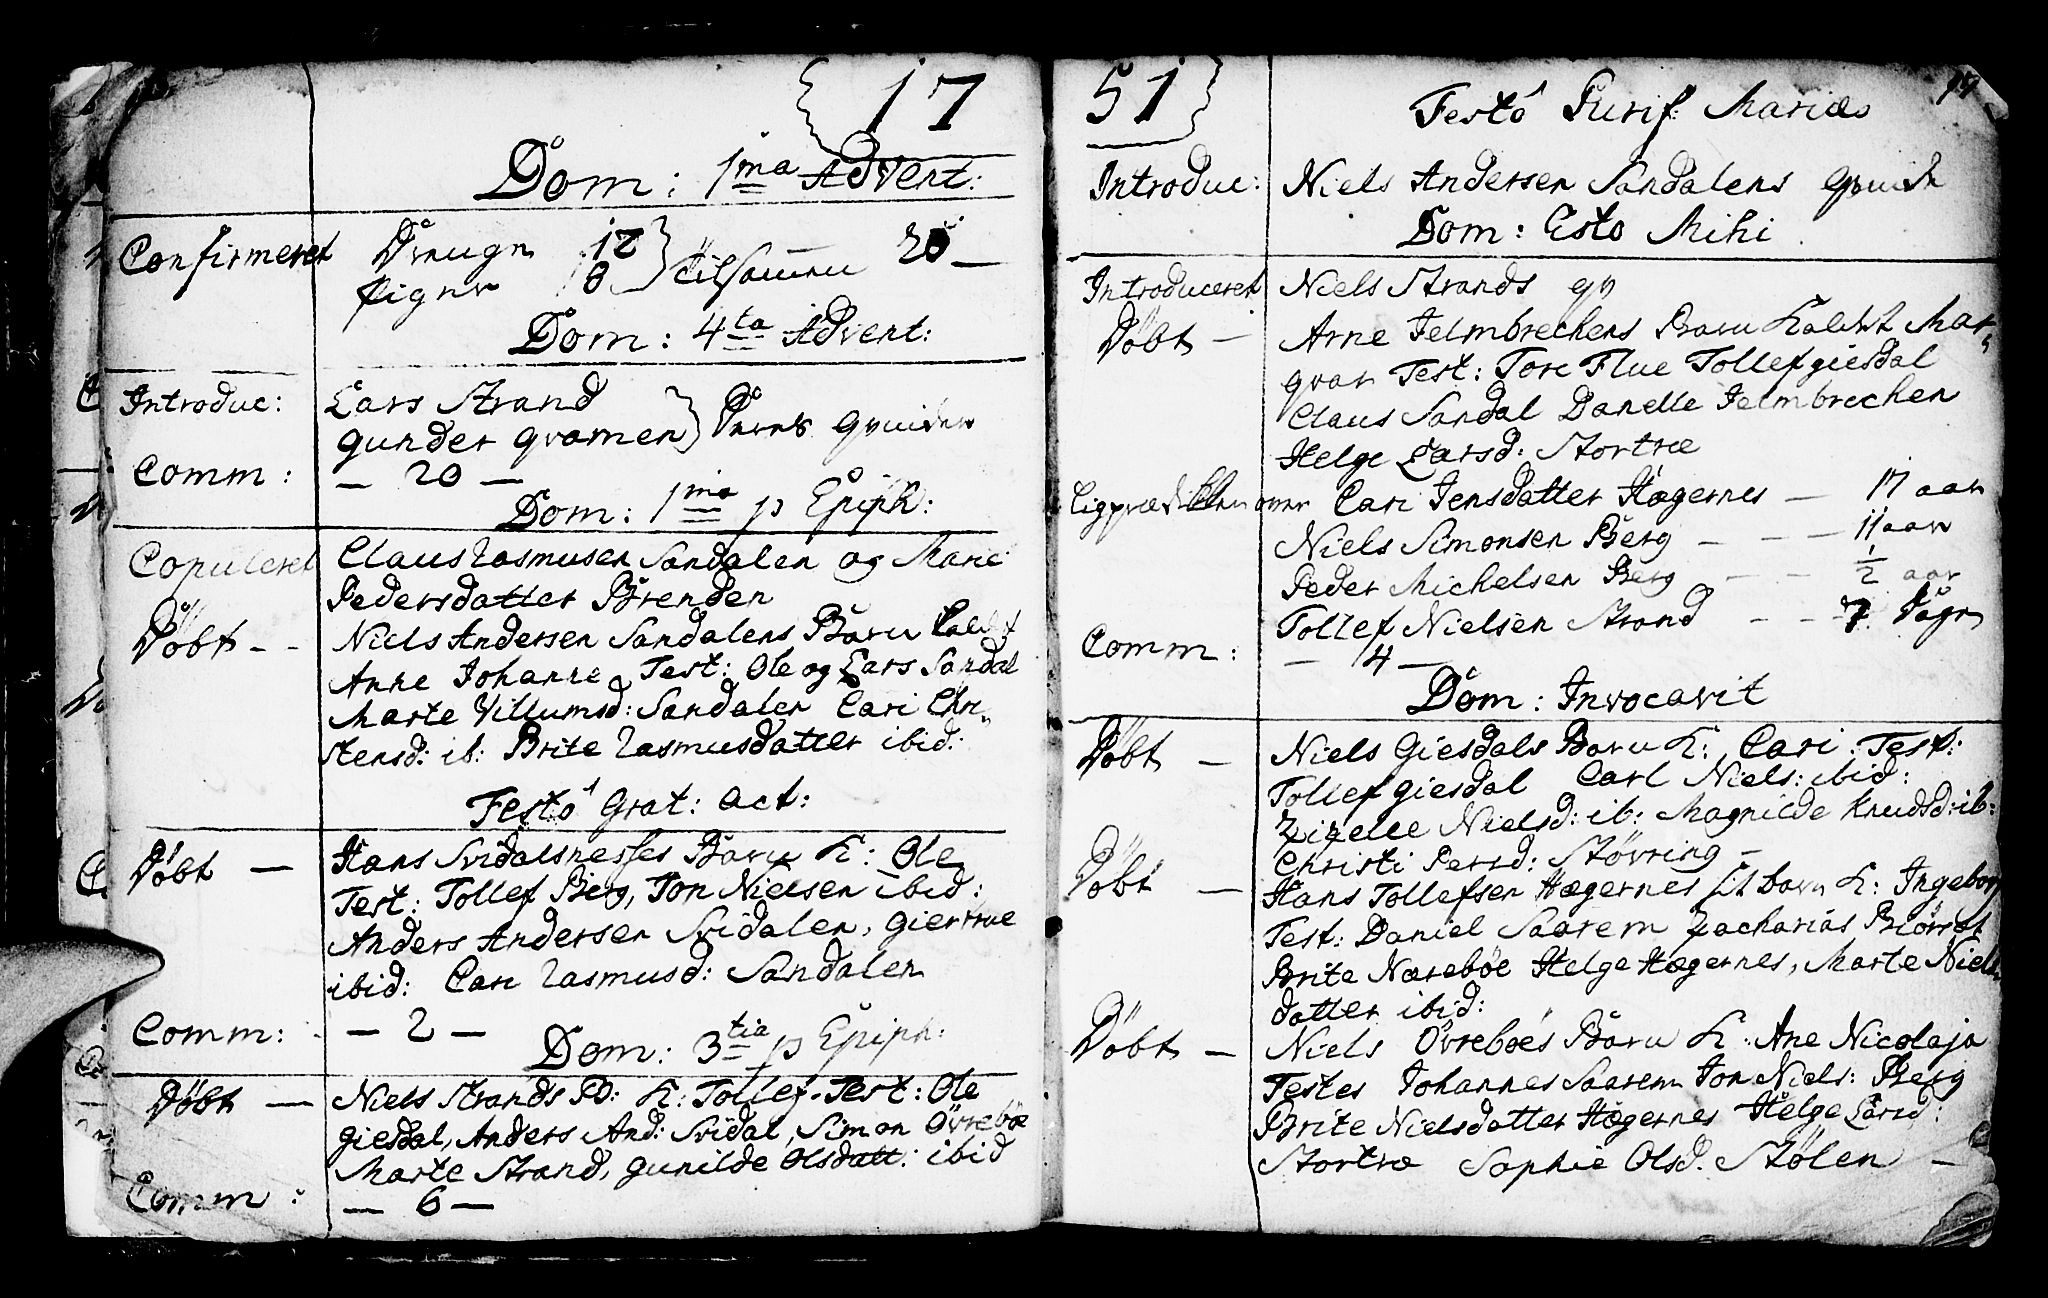 17
Dom: 1ma Advent:
Confirmeret Drenge 12
Piger 8 Tilsamen 20 —
Dom: 4ta Advent:
Introduc: Lars Strand
Gunder Qvamen Deres Qvinder
Comm: — 20 —
Dom: 1ma p Epiph:
Copuleret Claus Rasmusen Sandalen og Marie
Pedersdatter Brenden
Döbt - - Niels Andersen Sandalens Barn Kaldt
Anne Johanne Test: Ole og Lars Sandal
Marte Villumsd: Sandalen Cari Chri
stensd: ib: Brite Rasmusdatter ibid:
Festo Grat: act:
Döbt — Hans Svidalsnesses Barn K: Ole
Test: Tollef Berg, Jon Nielsen ibid:
Anders Andersen Svidalen, Giertrue
ibid: Cari Rasmusd: Sandalen
Comm: — 2 —
Dom: 3tia p Epiph:
Döbt — Niels Strands B: K: Tollef. Test: Ole
Giesdal, Anders And: Svidal, Simon Övreböe
Marte Strand, Gunilde Olsdatt: ibid
Comm: — 6 —
51
Festo Purif: Mariæ
Introduc: Niels Andersen Sandalens Qvinde
Dom: Esto Mihi
Introduceret Niels Strands Qv
Döbt — Arne Jelmbrechens Barn Kaldt Mar
qvar Test: Tore Flue Tollef Giesdal
Claus Sandal Danelle Jelmbrechen
Helge Larsd: Stortræ
Ligpræd over Cari Jensdatter Hægernes — 17 aar
Niels Simonsen Berg - - — 11 aar
Peder Michelsen Berg - - 1/2 aar
Tollef Nielsen Strand - - 7 Dage
Comm: — 14 —
Dom: Invocavit
Döbt — Niels Giesdals Barn K: Cari: Test:
Tollef Giesdal Carl Niels: ibid:
Zizelle Nielsd: ib: Magnilde Knudsd: ib:
Christi Persd: Støvring —
Döbt — Hans Tollefsen Hægernes barn K: Ingeborg
Test: Daniel Saarem Zacharias Biørset
Brite Nærebøe Helge Hægernes, Marte Niels
datter ibid:
Döbt — Niels Övreböes Barn K: Ane Nicolaja
Testes Johannes Saarem Jon Niels: Berg
Brite Nielsdatter Hægernes Helge Larsd:
Stortræ Sophie Olsd. Stølen —